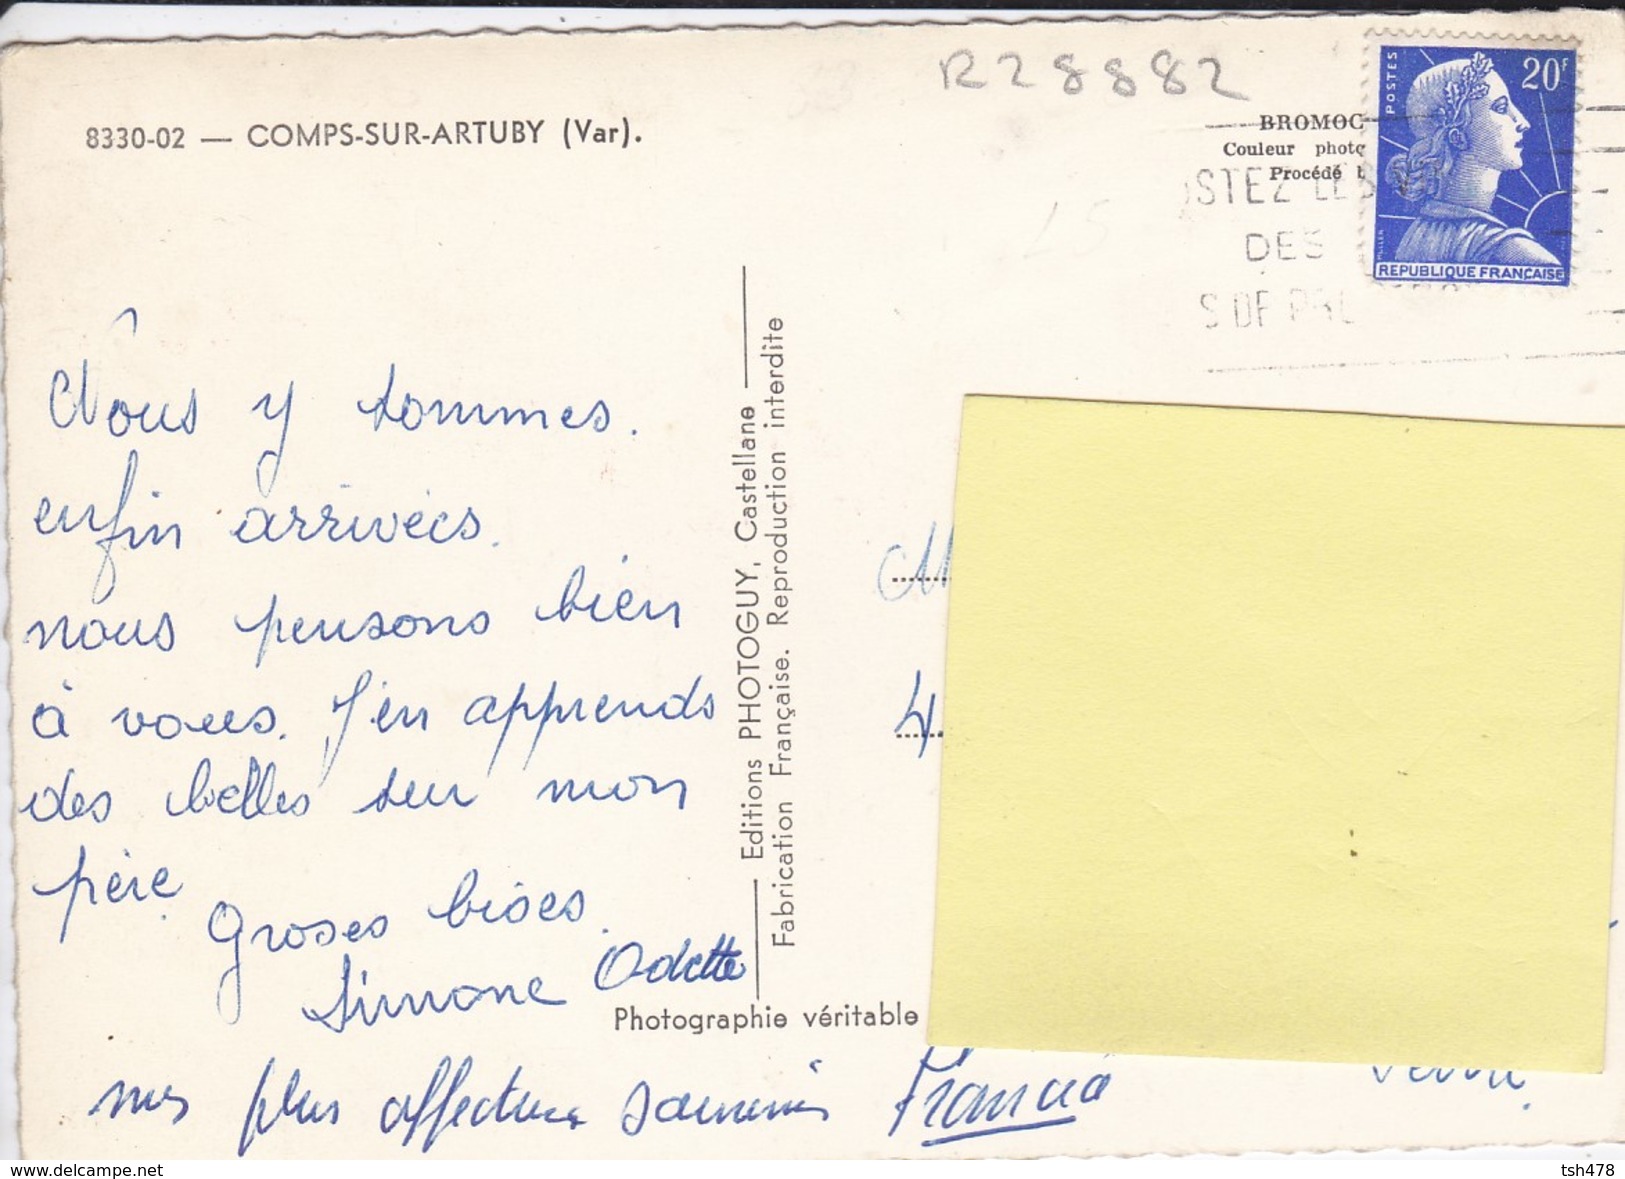 R28882
8330-02 — COMPS-SUR-ARTUBY (Var).
BROMOC
Couleur photo
Procédé
POSTES
20F
MULLER
REPUBLIQUE FRANÇAISE
OSTEZ LES
DES
S DE
Nous y sommes.
enfin arrivées.
nous pensons bien
à vous. J'en apprends
des belles sur mon
père
Groses bises.
Simone Odette
mes plus affectueux souvenirs
Editions PHOTOGUY, Castellane
Fabrication Française. Reproduction interdite
Photographie véritable
M
4
delcampe.net
tsh478